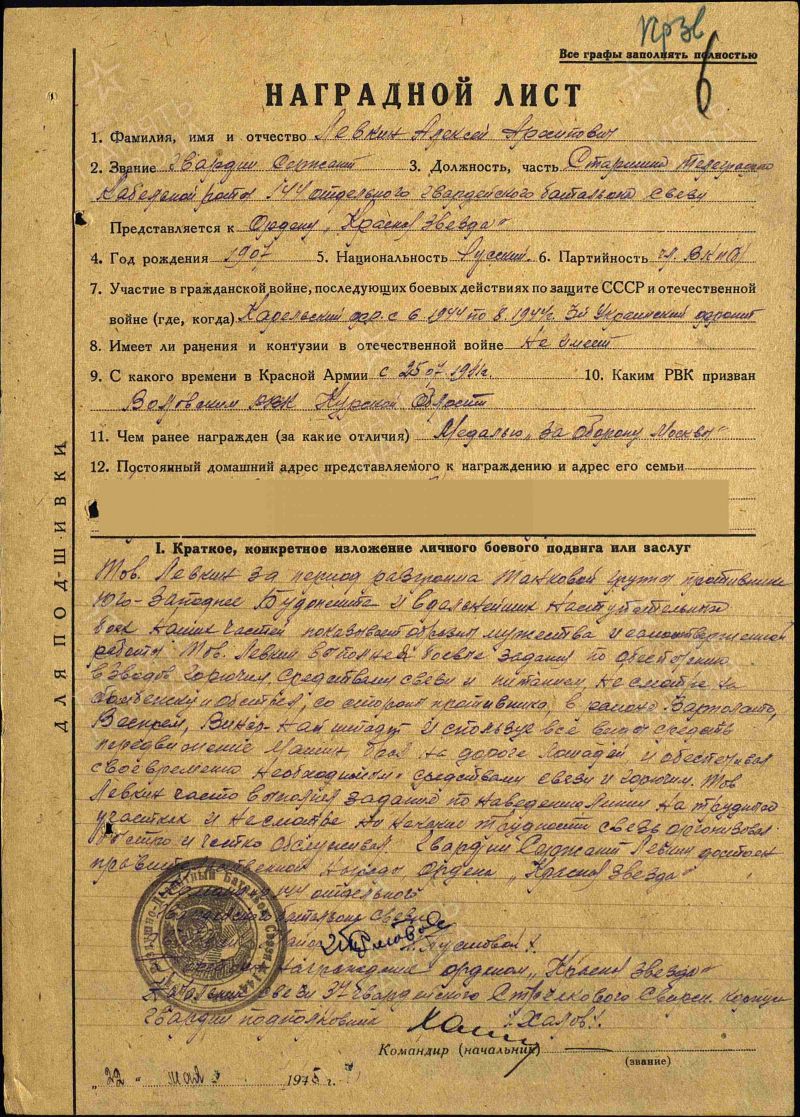 Прзв
6
Все графы заполнять полностью
НАГРАДНОЙ ЛИСТ
1. Фамилия, имя и отчество Левкин Алексей Архипович
2. Звание гвардии сержант 3. Должность, часть Старшина телеграфно
кабельной роты 144 отдельного гвардейского баталиона связи
Представляется к Ордену „Красная Звезда"
4. Год рождения 1907 5. Национальность Русский 6. Партийность чл. ВКП(б)
7. Участие в гражданской войне, последующих боевых действиях по защите СССР и отечественной
войне (где, когда) Карельский фр. с 6.1944 по 8.1944г. 3й Украинский фронт
8. Имеет ли ранения и контузии в отечественной войне Не имеет
9. С какого времени в Красной Армии с 25.07.1941г. 10. Каким РВК призван
Воловским РВК Курской области
11. Чем ранее награжден (за какие отличия) Медалью „За оборону Москвы"
12. Постоянный домашний адрес представляемого к награждению и адрес его семьи
I. Краткое, конкретное изложение личного боевого подвига или заслуг
Тов. Левкин за период разгрома танковой группы противника
юго-западнее Будапешта и в дальнейших наступательных
боях наших частей показывает образцы мужества и самоотверженной
работы. Тов. Левкин выполняя боевые задания по обеспечению
взводов горючим, средствами связи и питанием, не смотря на
бомбежку и обстрел, со стороны противника, в районе
Веспрем, Винер-Нойштадт используя все виды средств
передвижения машин, брал на дороге лошадей и обеспечивал
своевременно необходимыми средствами связи и горючим. Тов
Левкин часто выполнял задание по наведению линии на трудных
участках и не смотря на трудности связь организовал
быстро и четко обслуживал. Гвардии Сержант Левкин достоин
правительственной награды ордена „Красная Звезда"
144 отдельного
гвардейского баталиона связи
/Пустовой/
награждения орденом „Красная Звезда"
Начальник связи 37 гвардейского Стрелкового Свирск. корпуса
гвардии подполковник /Халов/
Командир (начальник)
(звание)
„22" мая 1945 г.
ДЛЯ ПОДШИВКИ